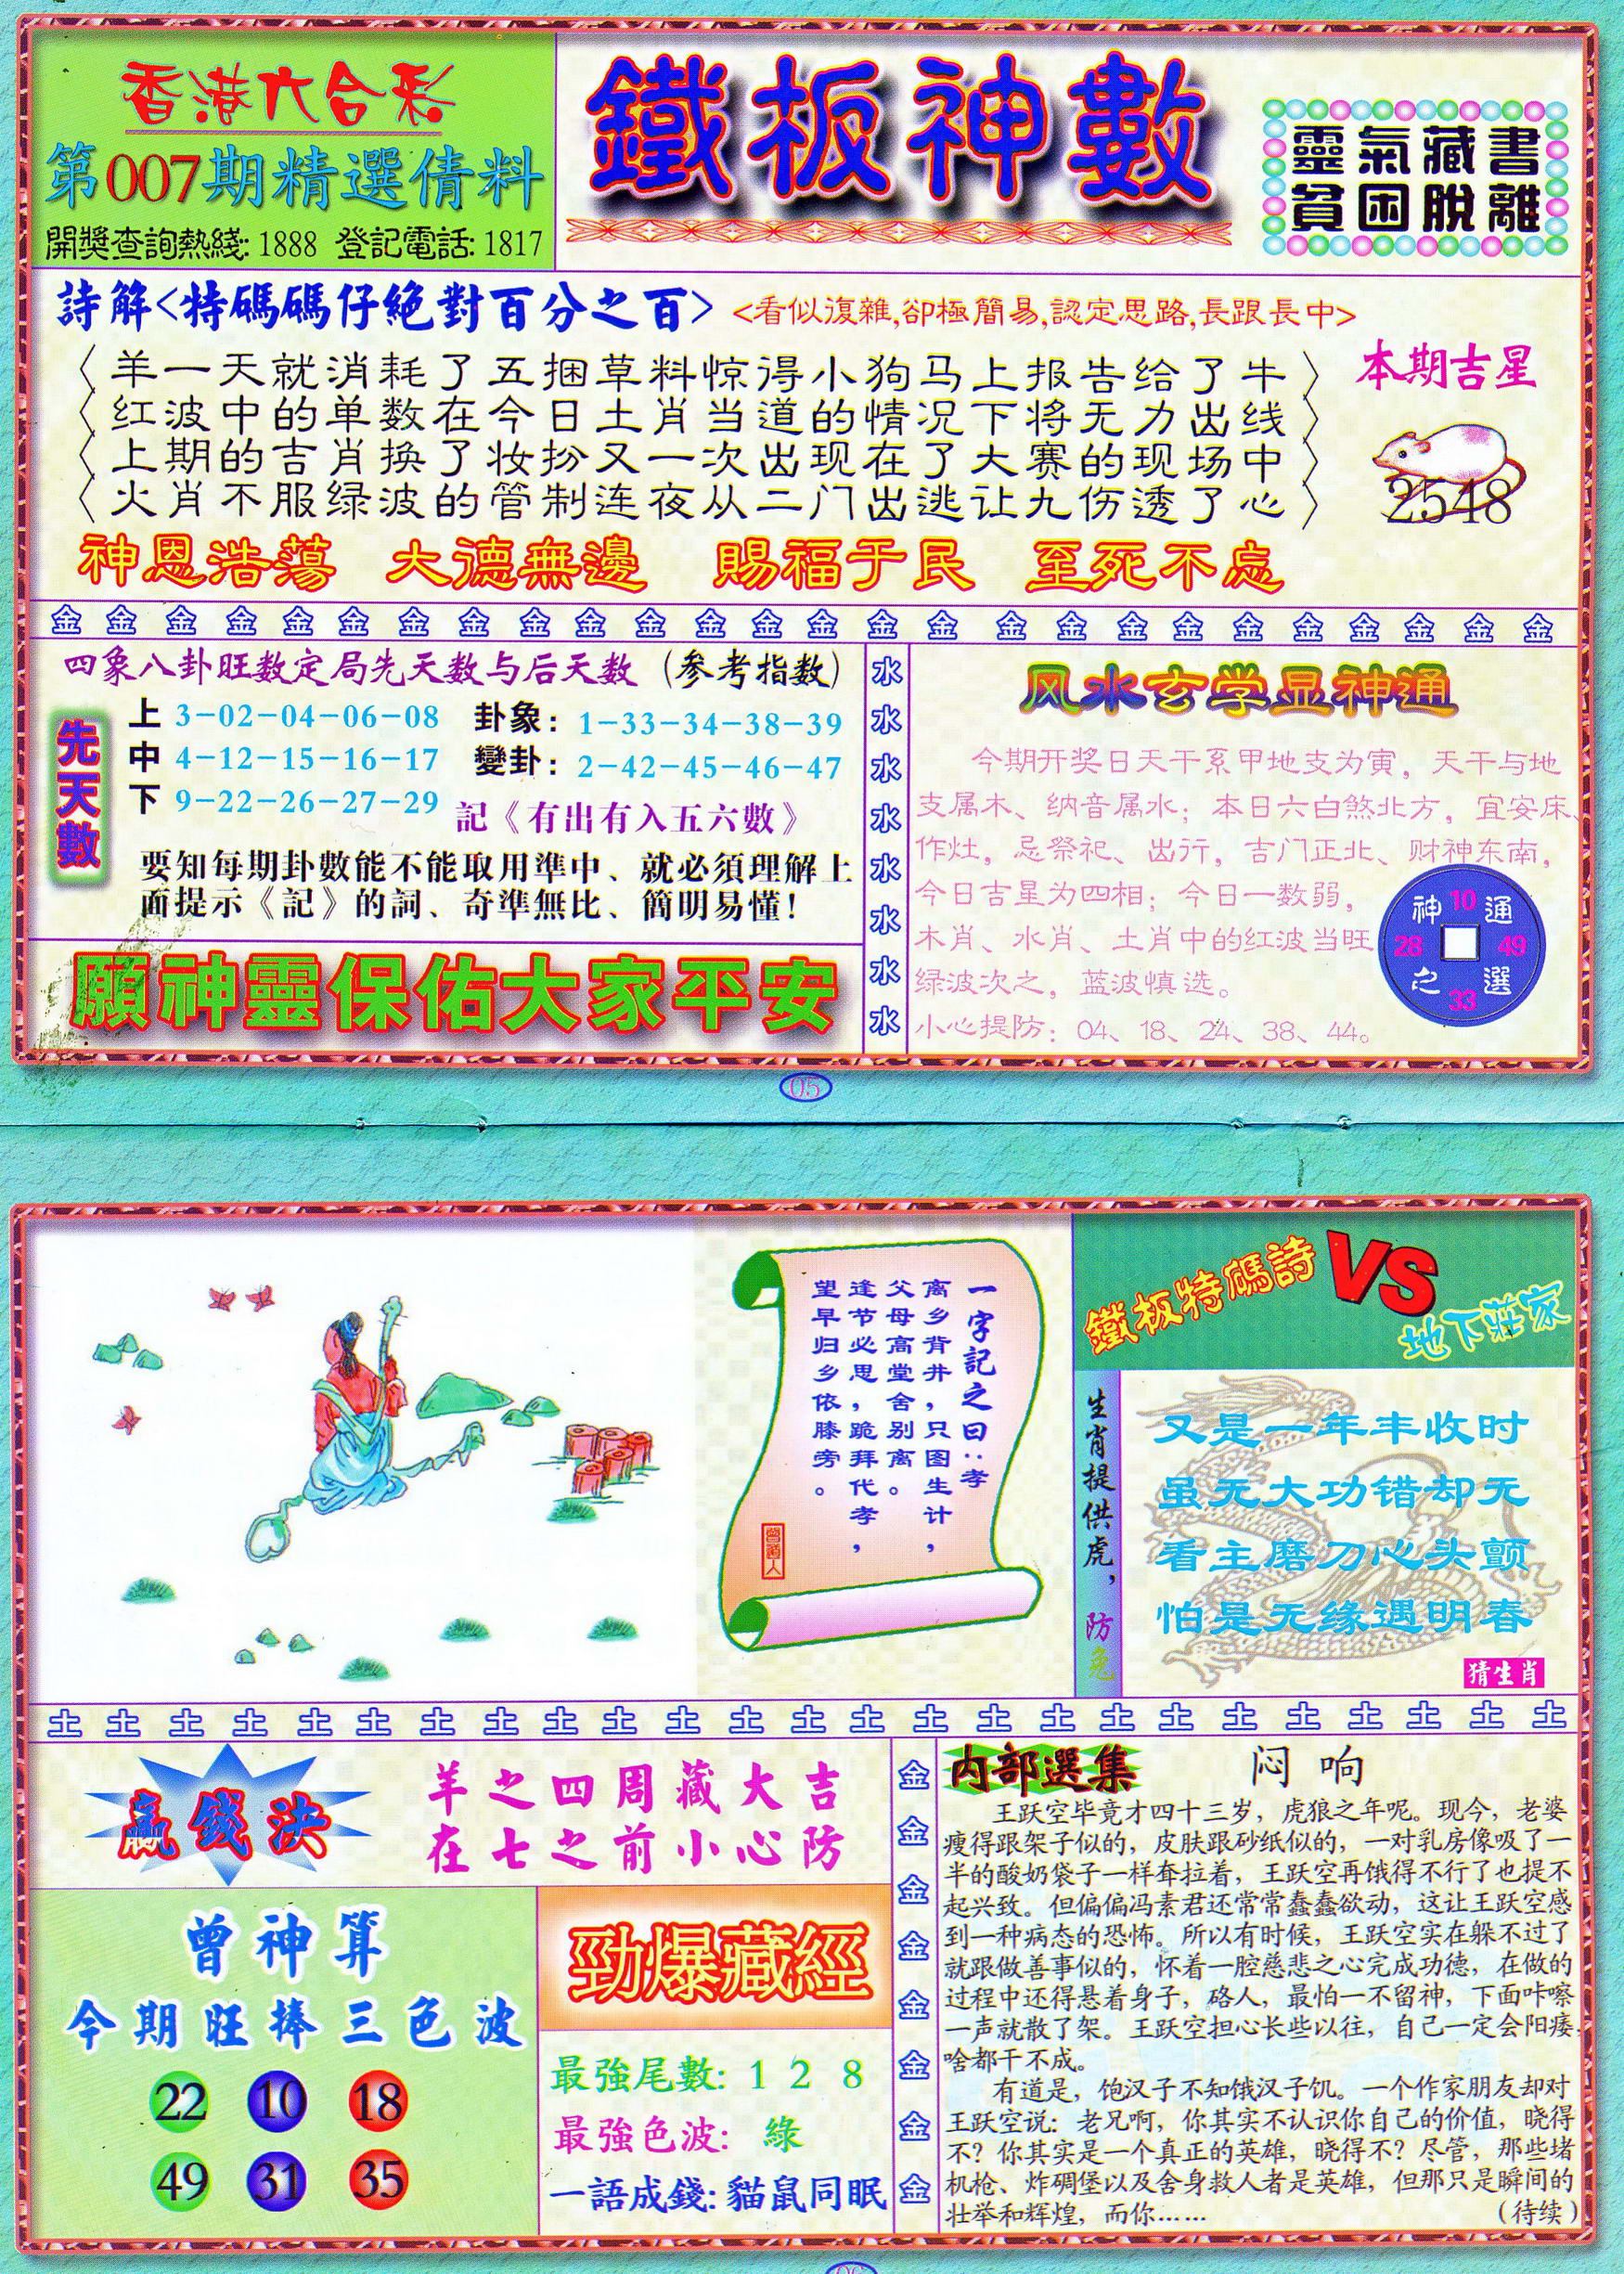 香港六合彩
第007期精選倩料
開獎查詢熱綫: 1888 登記電話: 1817
鐵板神數
靈氣藏書
貧困脫離
詩解<特碼碼仔絕對百分之百>
<看似復雜,卻極簡易,認定思路,長跟長中>
羊一天就消耗了五捆草料惊得小狗马上报告给了牛
红波中的单数在今日土肖当道的情况下将无力出线
上期的吉肖换了妆扮又一次出现在了大赛的现场中
火肖不服绿波的管制连夜从二门出逃让九伤透了心
本期吉星
2548
神恩浩蕩 大德無邊 賜福于民 至死不忘
金 金 金 金 金 金 金 金 金 金 金 金 金 金 金 金 金 金 金 金 金 金 金 金 金 金
四象八卦旺数定局先天数与后天数(参考指数)
先天數
上 3-02-04-06-08
中 4-12-15-16-17
下 9-22-26-27-29
卦象: 1-33-34-38-39
變卦: 2-42-45-46-47
記《有出有入五六數》
要知每期卦數能不能取用準中、就必須理解上
面提示《記》的詞、奇準無比、簡明易懂!
願神靈保佑大家平安
水
水
水
水
水
水
水
水
风水玄学显神通
今期开奖日天干系甲地支为寅，天干与地
支属木、纳音属水；本日六白煞北方，宜安床、
作灶，忌祭祀、出行，吉门正北、财神东南，
今日吉星为四相；今日一数弱，
木肖、水肖、土肖中的红波当旺
绿波次之，蓝波慎选。
小心提防：04、18、24、38、44。
神 10 通
28 49
之 33 選
05
一字記之曰:孝
离乡背井，只图生计，
父母高堂舍别离。
逢节必思，跪拜代孝，
望早归乡依膝旁。
曾道人
鐵板特碼詩
VS
地下莊家
生肖提供虎，防兔
又是一年丰收时
虽无大功错却无
看主磨刀心头颤
怕是无缘遇明春
猜生肖
土 土 土 土 土 土 土 土 土 土 土 土 土 土 土 土 土 土 土 土 土 土 土 土 土
贏錢決
羊之四周藏大吉
在七之前小心防
曾神算
今期旺捧三色波
22 10 18
49 31 35
勁爆藏經
最強尾數: 1 2 8
最強色波: 綠
一語成錢: 貓鼠同眠
金
金
金
金
金
金
金
金
内部選集
闷响
王跃空毕竟才四十三岁，虎狼之年呢。现今，老婆
瘦得跟架子似的，皮肤跟砂纸似的，一对乳房像吸了一
半的酸奶袋子一样耷拉着，王跃空再饿得不行了也提不
起兴致。但偏偏冯素君还常常蠢蠢欲动，这让王跃空感
到一种病态的恐怖。所以有时候，王跃空实在躲不过了
就跟做善事似的，怀着一腔慈悲之心完成功德，在做的
过程中还得悬着身子，硌人，最怕一不留神，下面咔嚓
一声就散了架。王跃空担心长些以往，自己一定会阳痿，
啥都干不成。
有道是，饱汉子不知饿汉子饥。一个作家朋友却对
王跃空说：老兄啊，你其实不认识你自己的价值，晓得
不？你其实是一个真正的英雄，晓得不？尽管，那些堵
机枪、炸碉堡以及舍身救人者是英雄，但那只是瞬间的
壮举和辉煌，而你……
（待续）